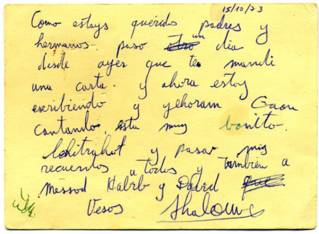 15/10/73
Como estays queridos padres y
hermanos. paso un dia
disde ayer que te mandi
una carta. y ahora estoy
escribiendo y yehoram Gaon
cantando. esta muy bonito.
lehitrahot y pasar mis
recuerdos a todos y tambien a
Messod Habib y David
Vesos Shalom